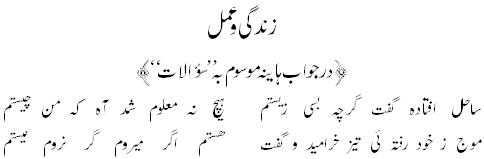 زندگی و عمل
﴿در جواب ہاینہ موسوم بہ ”سؤالات“﴾
ساحل افتادہ گفت گرچہ بسی زیستم ہیچ نہ معلوم شد آہ کہ من چیستم
موج ز خود رفتہ ئی تیز خرامید و گفت ہستم اگر میروم گر نروم نیستم